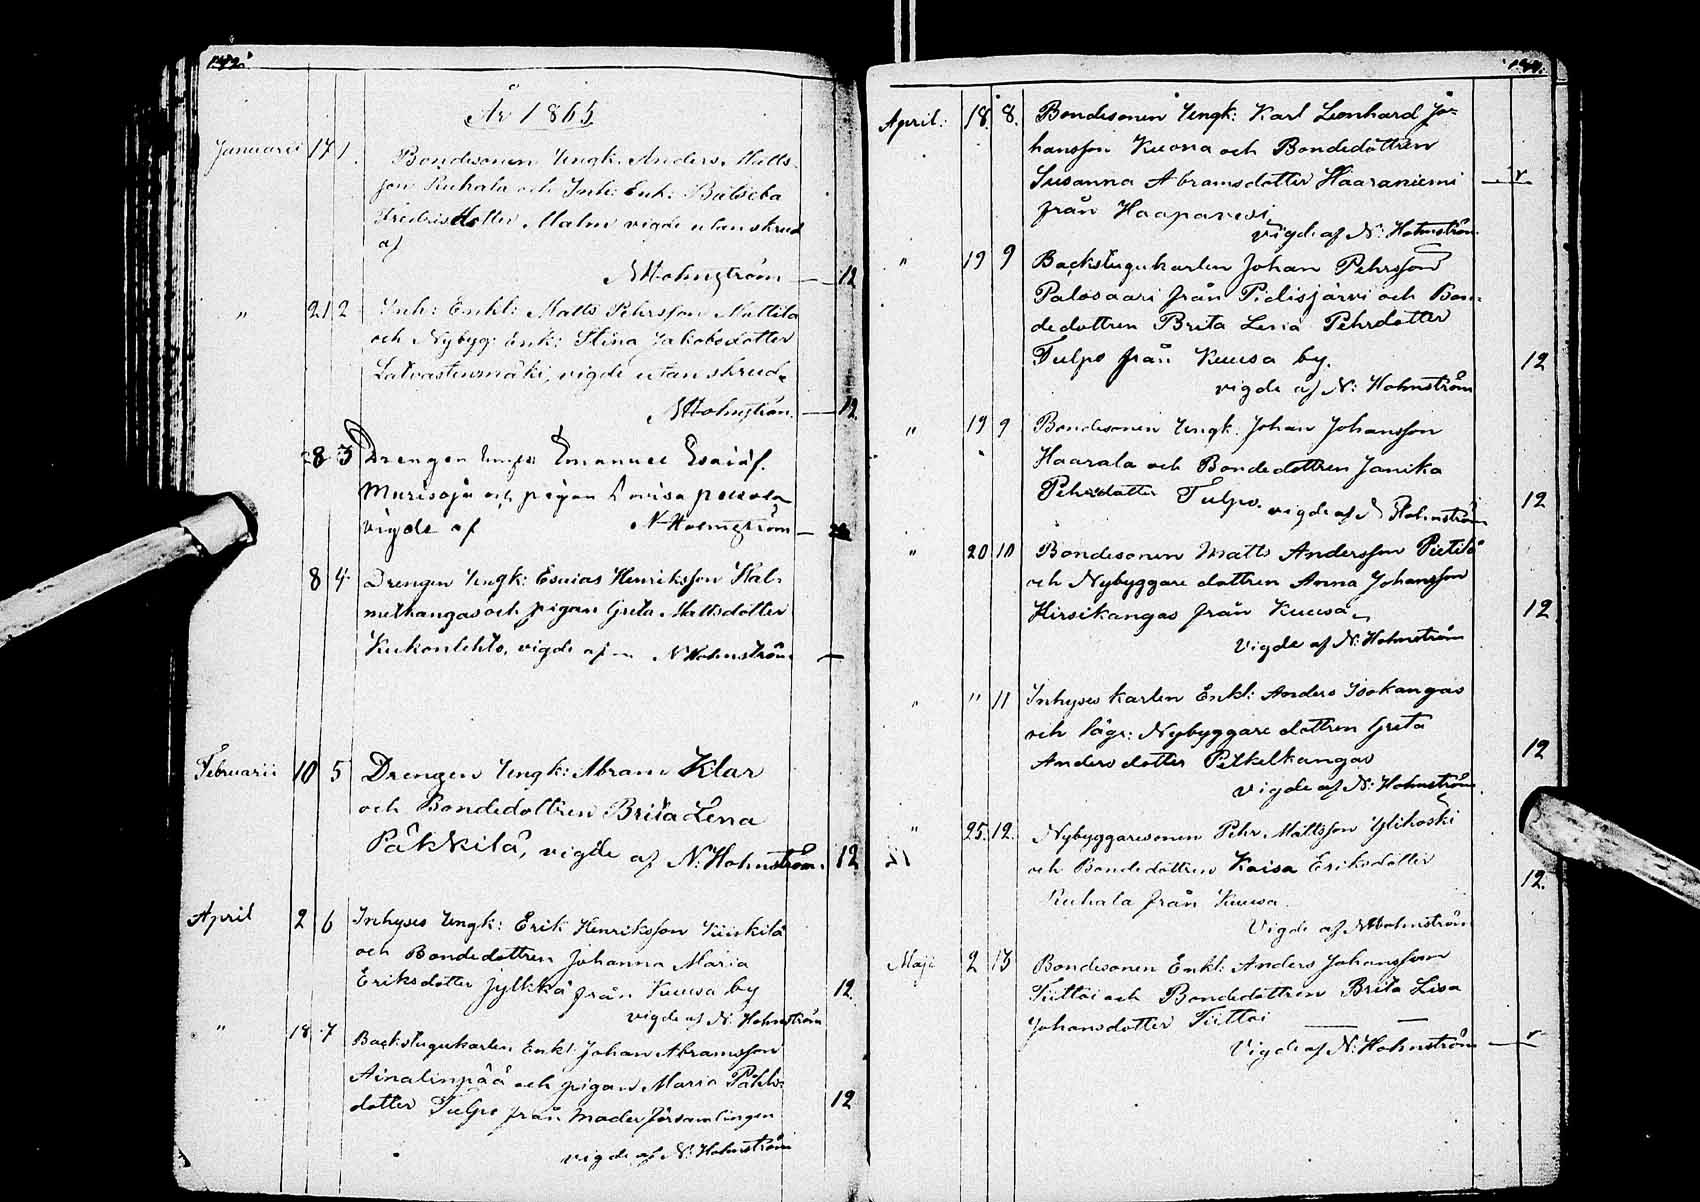 År 1865
Januarii 17 1. Bondesonen Ungk: Anders Matts-
son Ruhala och Inh: Enk: Batseba
Fredrisdotter Malm vigde utan skrud
af
N Holmström — 12
" 21 2 Inh: Enkl: Matts Pehrsson Mattila
och Nybyg: Enk: Stina Jakobsdotter
Latvastenmäki, vigde utan skrud.
N Holmström — 12
28 3 Drengen Emanuel Esaiæs.
Murisoja och pigan Lovisa
vigde af N Holmström —
8 4 Drengen Ungk: Esaias Henriksson Kal-
methangas och pigan Greta Mattsdotter
Kukonlehto, vigde af N Holmström —
Februarii 10 5 Drengen Ungk: Abram Klar
och Bondedottren Brita Lena
Päkkilä, vigde af N: Holmström. 12
April 2 6 Inhyses Ungk: Erik Henriksson Kiiskilä
och Bondedottren Johanna Maria
Eriksdotter Jylkkä från Kuusa by 12.
vigde af N. Holmström
" 18 7 Backstugukarlen Enkl: Johan Abramsson
Ainalinpää och pigan Maria Pehrs-
dotter Tulpo från Moderförsamlingen 12
vigde af N: Holmström
April: 18. 8. Bondesonen Ungk: Karl Leonhard Jo-
hansson Kuona och Bondedottren
Susanna Abramsdotter Haaraniemi — r
från Haapavesi
vigde af N: Holmström
" 19 9 Backstugukarlen Johan Pehrsson
Palosaari från Pidisjärvi och Bon-
dedottren Brita Lena Pehrdotter
Tulpo från Kuusa by. 12
vigde af N: Holmström
" 19 9 Bondesonen Ungk. Johan Johansson
Haarala och Bondedottren Janika
Pehrsdotter Tulpo. vigde af N Holmström 12
" 20 10 Bondesonen Matts Andersson Pietilä
och Nybyggare dottren Anna Johansson
Hirsikangas från Kuusa 12
Vigde af N: Holmström
" " 11 Inhyses karlen Enkl: Anders Isokangas
och lägr: Nybyggare dottren Greta
Anders dotter Petkelkangas 12
vigde af N: Holmström.
" 25. 12. Nybyggaresonen Pehr Mattsson Ylikoski
och Bondedottren Kaisa Eriksdotter 12.
Ruhala från Kuusa
Vigde af N Holmström
Maji 2 13 Bondesonen Enkl: Anders Johansson
Tiittoi och Bondedottren Brita Lisa
Johansdotter Tiittoi
Vigde af N: Holmström — r